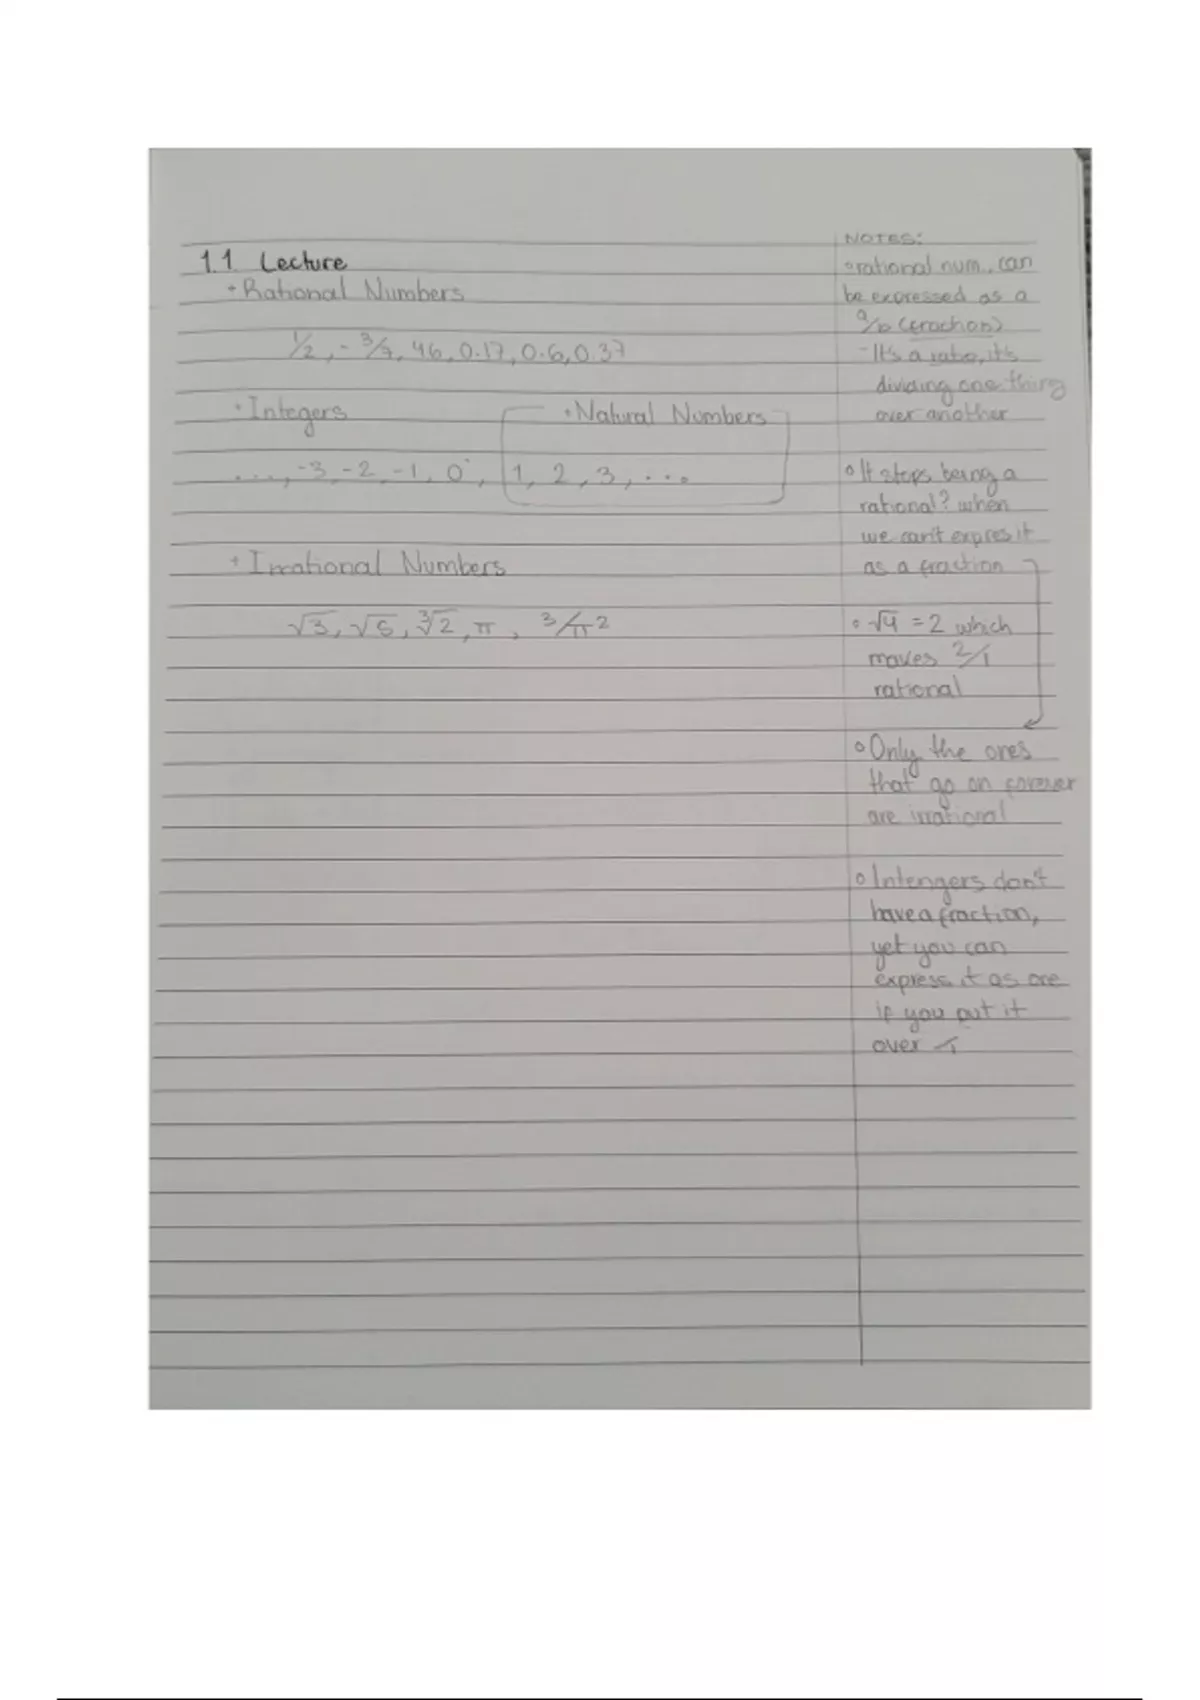 1.1 Lecture
• Rational Numbers
1/2, -3/7, 46, 0.17, 0.6, 0.37
• Integers
• Natural Numbers
..., -3, -2, -1, 0, 1, 2, 3, ...
• Irrational Numbers
√3, √5, ∛2, π, 3/π2
NOTES:
• rational num. can
be expressed as a
a/b (fraction)
- It's a ratio, it's
dividing one thing
over another
• It stops being a
rational? when
we can't expres it
as a fraction
• √4 = 2 which
makes 2/1
rational
• Only the ones
that go on forever
are irrational
• Intengers don't
have a fraction,
yet you can
express it as one
if you put it
over /1